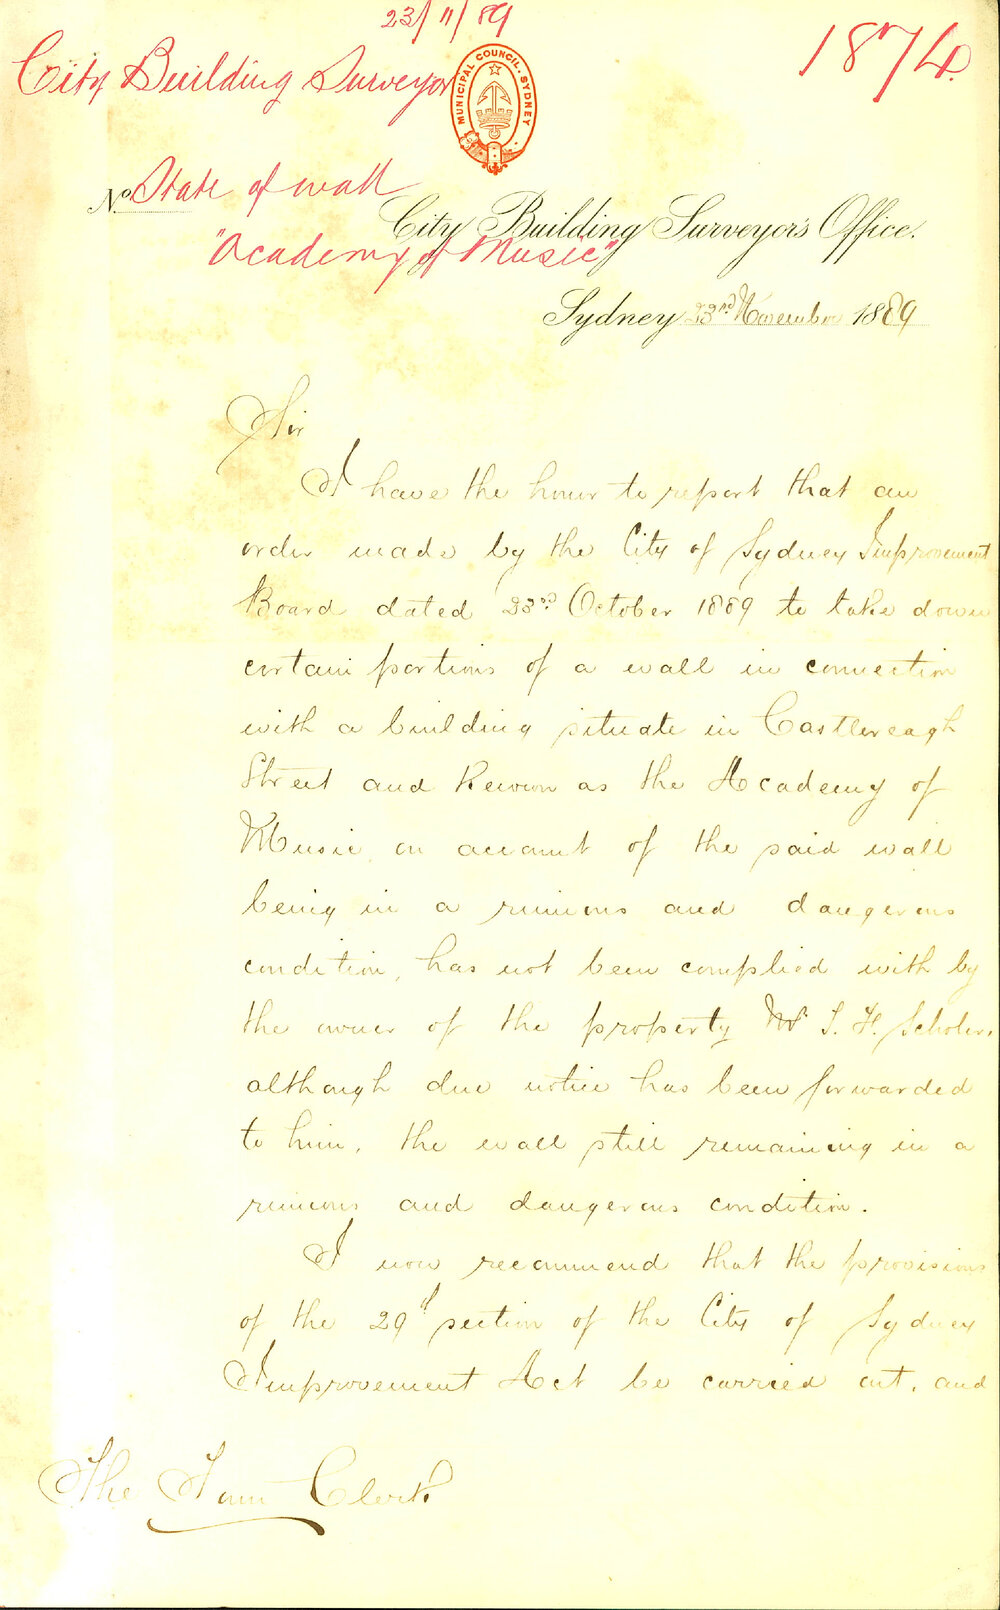 23/11/89
City Building Surveyor
1874
MUNICIPAL COUNCIL. SYDNEY
No. State of wall
City Building Surveyor's Office.
"Academy of Music"
Sydney 23rd November 1889
Sir
I have the honor to report that an
order made by the City of Sydney Improvement
Board dated 23rd October 1889 to take down
certain portions of a wall in connection
with a building situate in Castlereagh
Street and known as the Academy of
Music on account of the said wall
being in a ruinous and dangerous
condition, has not been complied with by
the owner of the property Mr S. H. Scholer.
although due notice has been forwarded
to him, the wall still remaining in a
ruinous and dangerous condition.
I now recommend that the provisions
of the 29th section of the City of Sydney
Improvement Act be carried out, and
The Town Clerk